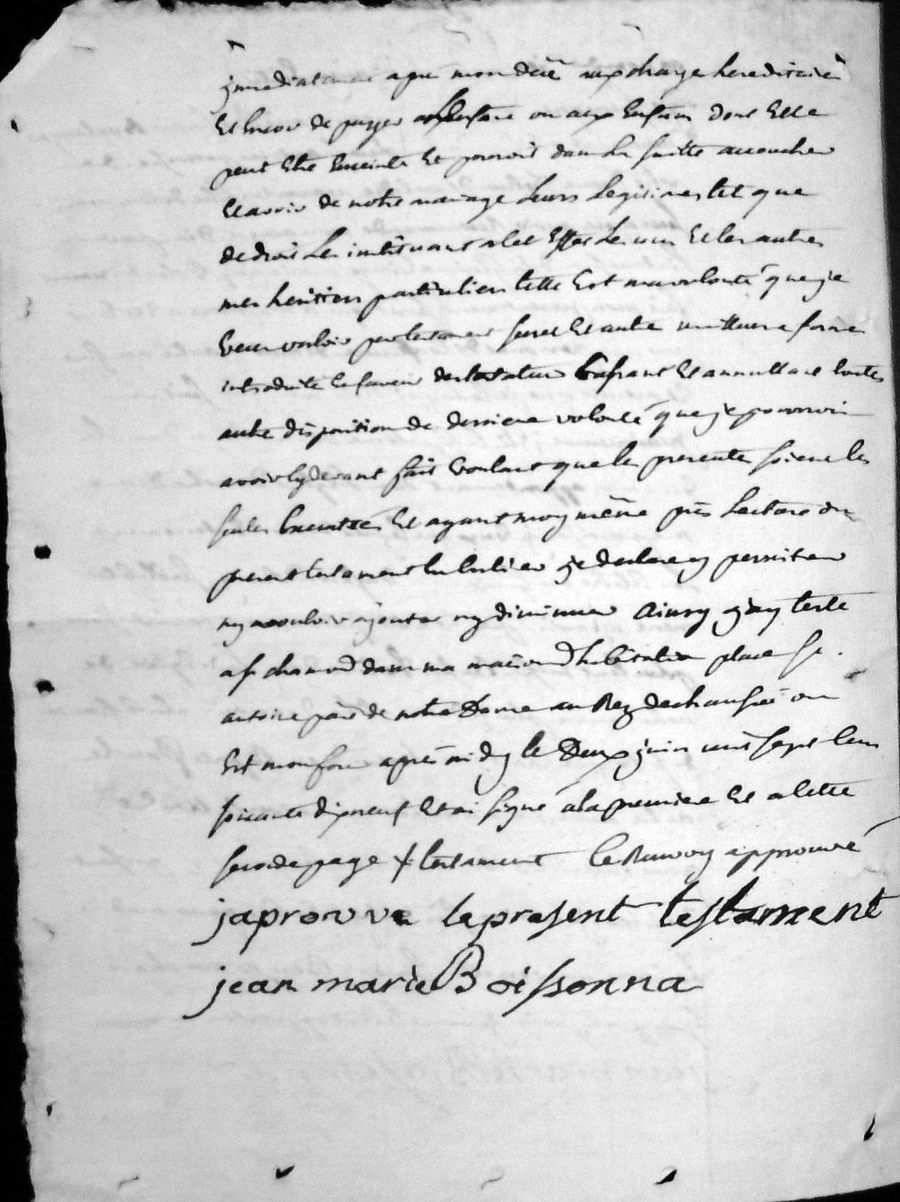 jmediatement apres mon decé aux charge hereditaire
Et Encor de payer a l'enfant ou aux Enfans dont Elle
peut Etre Enceinte Et pouroit dans la suitte accoucher
Et avoir de notre mariage leurs legitimes tel que
de droit les instituant a cet Effet les uns Et les autres
mes heritiers particuliers telle Est ma volonté que je
veux valoir par testament Et autre meilleure forme
introduitte En faveur des testateur Cassant Et annullant toutes
autre disposition de derniere volonté que je pourrois
avoir cy devant fait voulant que les presente soient les
seules Executées Et ayant moy même pris lecture du
present testament En Entier je declare y persister
ny vouloir ajouter ny diminuer ainsy j'ay testé
a st chamond dans ma maison d'habitation place st.
antoine parr de notre Dame au Rez de chaussée ou
Est mon four apres midy le Deux juin mil sept cent
soixante dix neuf Et ai signé a la premiere Et a cette
seconde page testament le Renvoy approuvé
japrouve le present testament
jean marie Boissonna